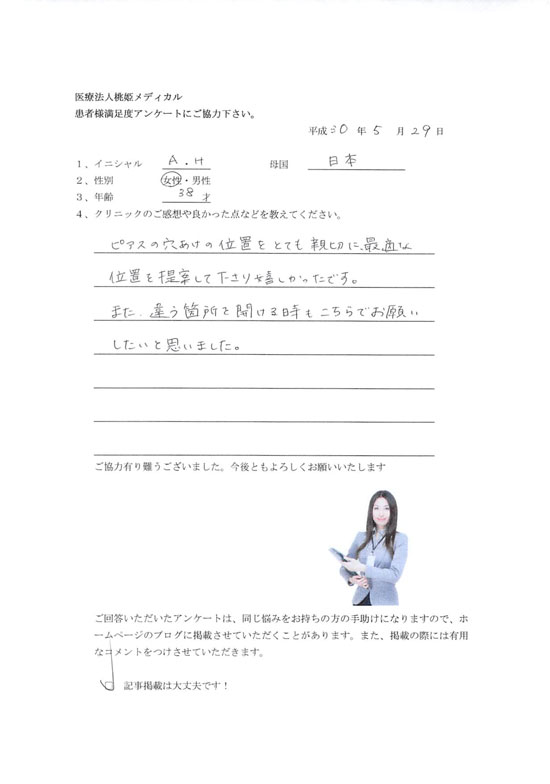 医療法人桃姫メディカル
患者様満足度アンケートにご協力下さい。
平成 30 年 5 月 29 日
1、イニシャル A.H 母国 日本
2、性別 女性・男性
3、年齢 38 才
4、クリニックのご感想や良かった点などを教えてください。
ピアスの穴あけの位置をとても親切に、最適な
位置を提案して下さり嬉しかったです。
また、違う箇所を開ける時もこちらでお願い
したいと思いました。
ご協力有り難うございました。今後ともよろしくお願いいたします
ご回答いただいたアンケートは、同じ悩みをお持ちの方の手助けになりますので、ホ
ームページのブログに掲載させていただくことがあります。また、掲載の際には有用
なコメントをつけさせていただきます。
記事掲載は大丈夫です！